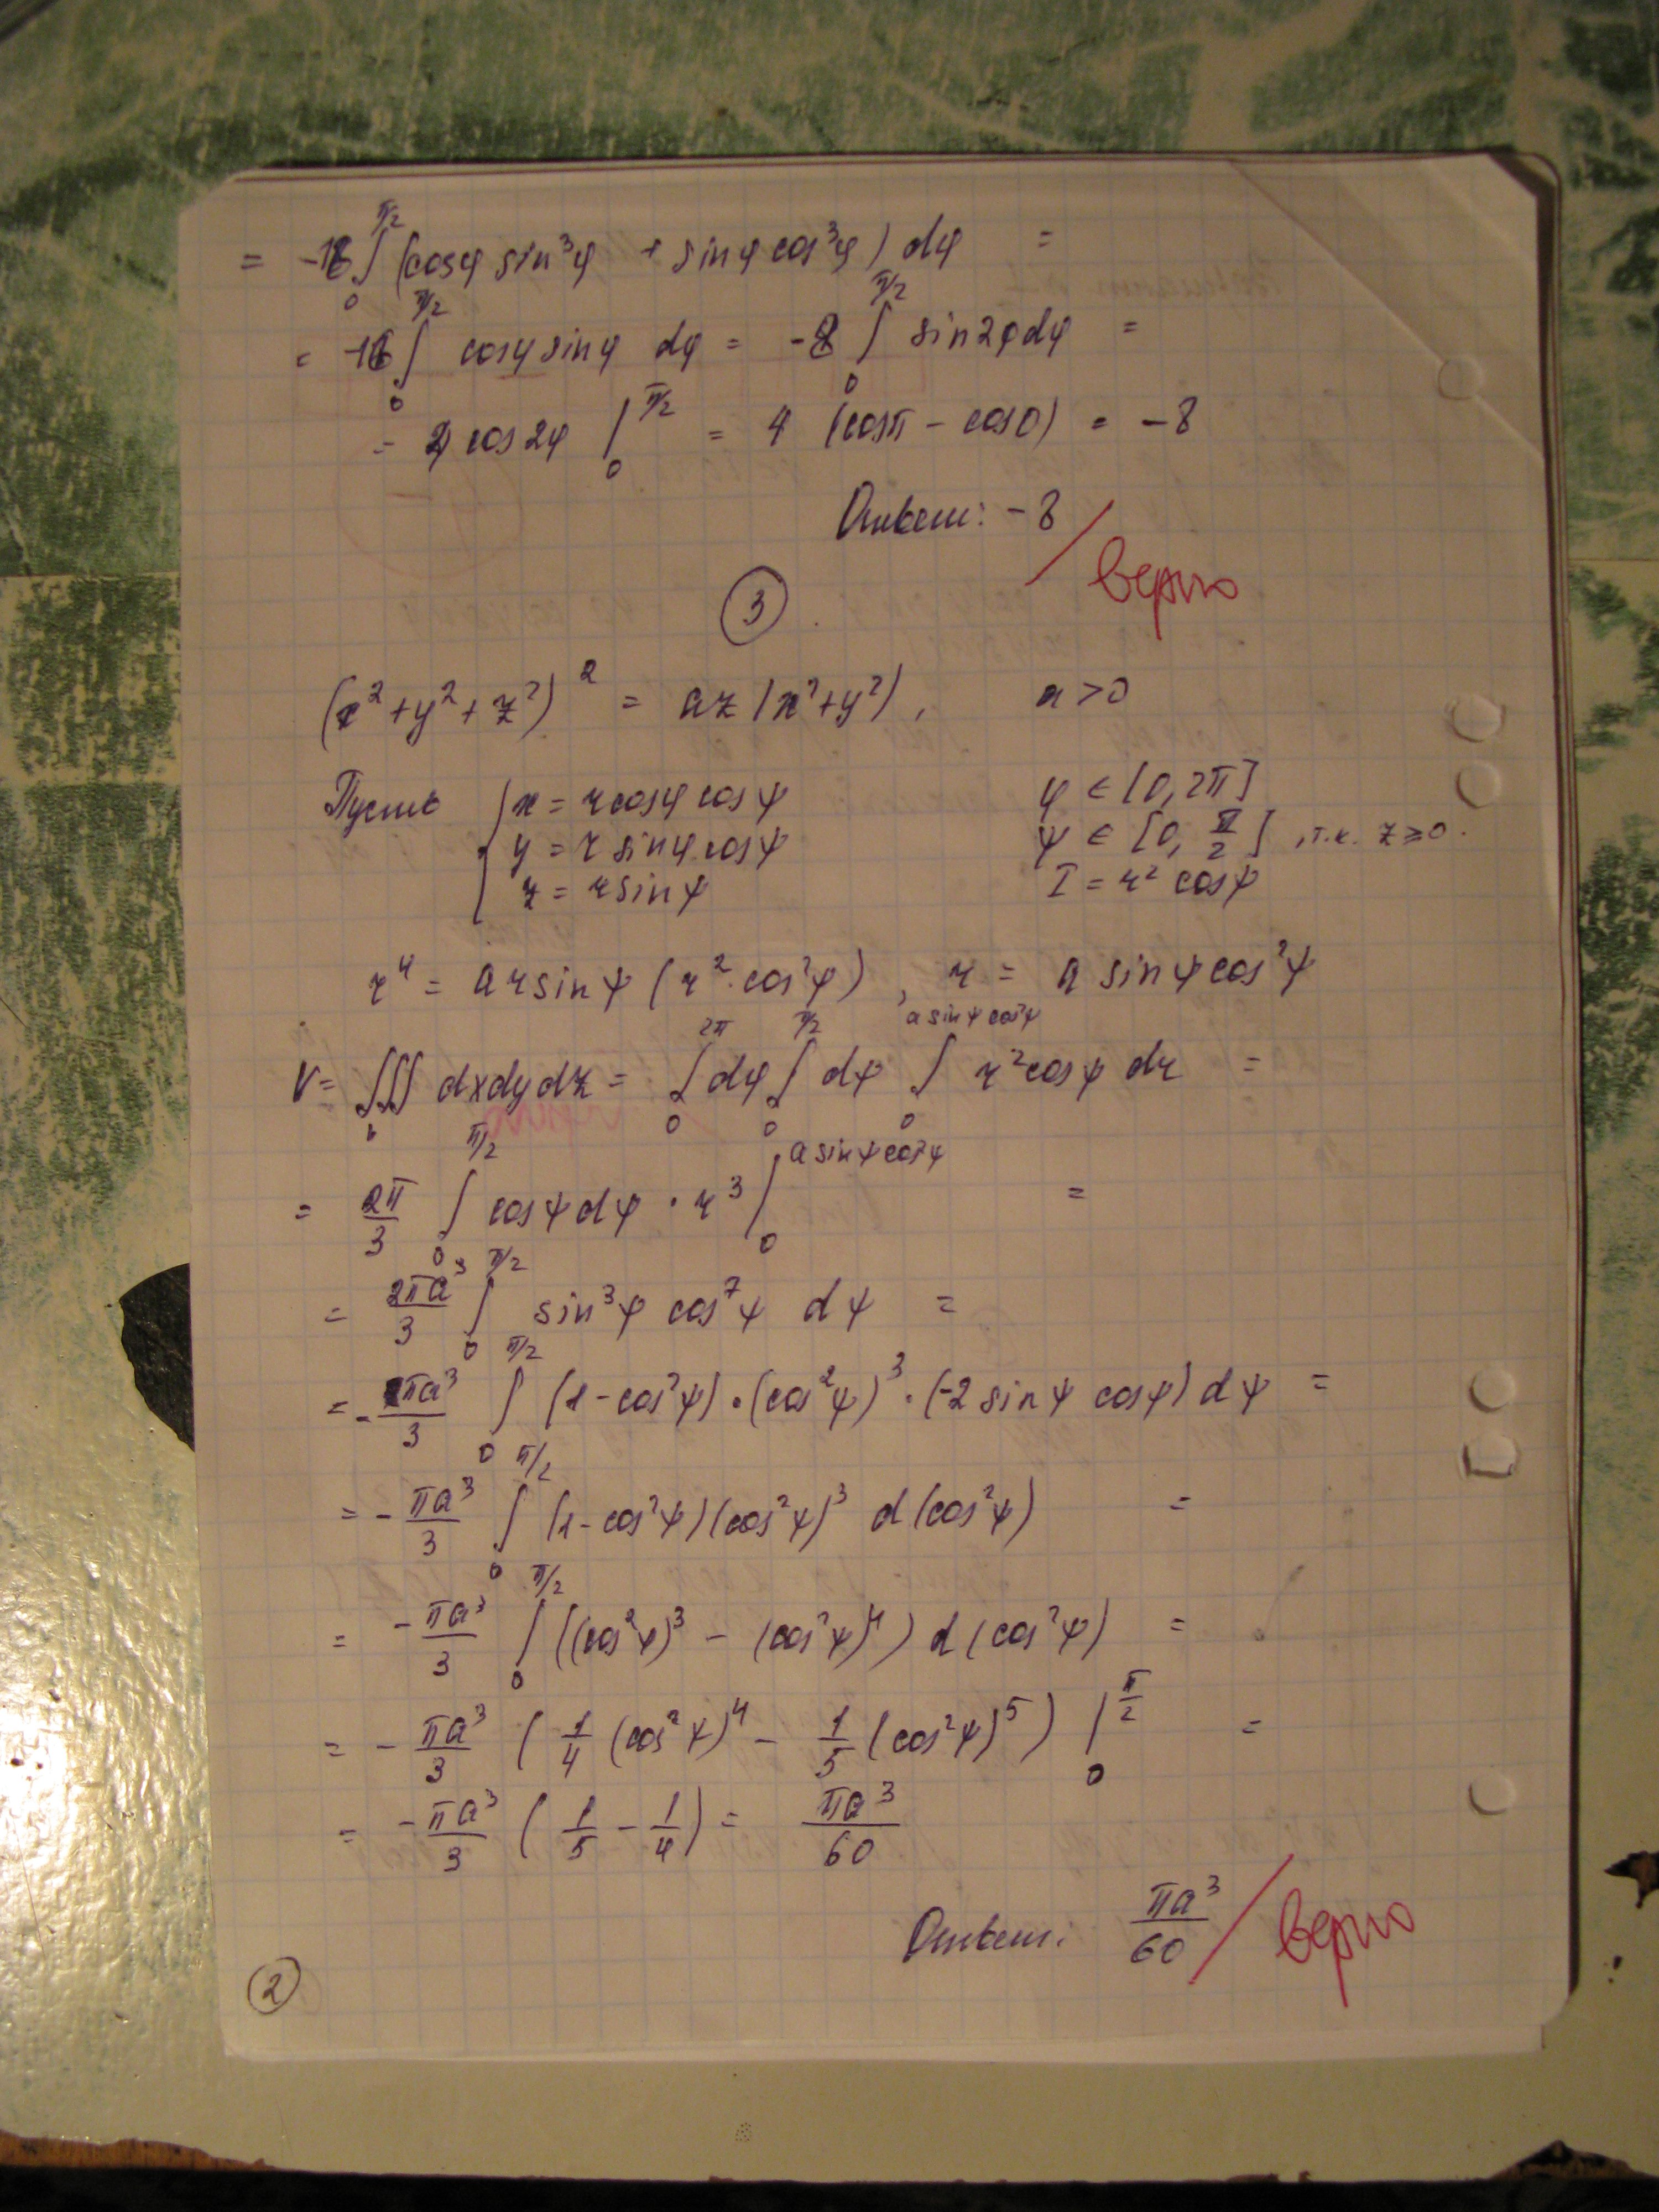 = -16 ∫₀^{π/2} (cosφ sin³φ + sinφ cos³φ) dφ =
= -16 ∫₀^{π/2} cosφ sinφ dφ = -8 ∫₀^{π/2} sin2φ dφ =
= 4 cos2φ |₀^{π/2} = 4 (cosπ - cos0) = -8
Ответ: -8 / верно
③
(x²+y²+z²)² = az(x²+y²), a>0
Пусть { x = r cosφ cosψ φ ∈ [0, 2π]
y = r sinφ cosψ ψ ∈ [0, π/2], т.к. z ≥ 0.
z = r sinψ I = r² cosψ
r⁴ = a r sinψ (r²·cos²ψ), r = a sinψ cos²ψ
V = ∭ dxdydz = ∫₀^{2π} dφ ∫₀^{π/2} dψ ∫₀^{a sinψ cos²ψ} r² cosψ dr =
= 2π/3 ∫₀^{π/2} cosψ dψ · r³ |₀^{a sinψ cos²ψ} =
= 2πa³/3 ∫₀^{π/2} sin³ψ cos⁷ψ dψ =
= - πa³/3 ∫₀^{π/2} (1-cos²ψ)·(cos²ψ)³·(-2 sinψ cosψ) dψ =
= - πa³/3 ∫₀^{π/2} (1-cos²ψ)(cos²ψ)³ d(cos²ψ) =
= -πa³/3 ∫₀^{π/2} ((cos²ψ)³ - (cos²ψ)⁴) d(cos²ψ) =
= - πa³/3 (1/4 (cos²ψ)⁴ - 1/5 (cos²ψ)⁵) |₀^{π/2} =
= -πa³/3 (1/5 - 1/4) = πa³/60
Ответ: πa³/60 / верно
②